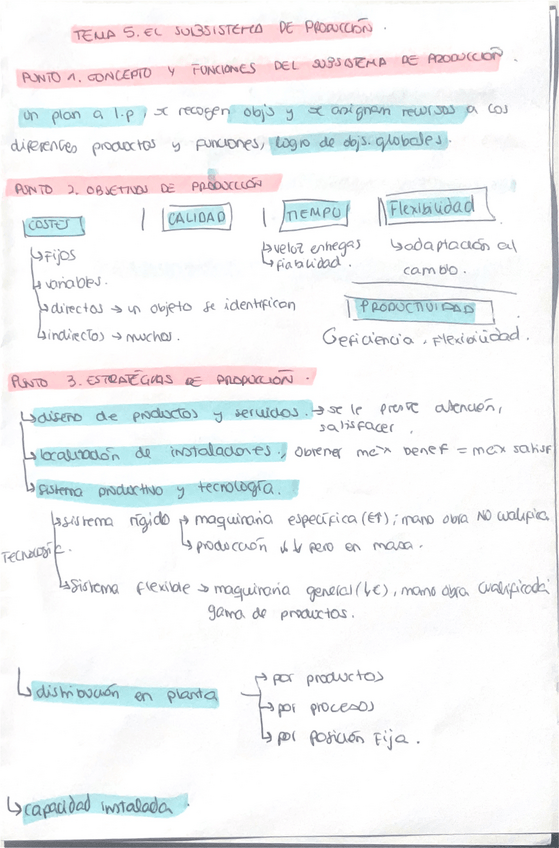 TEMA 5. EL SUBSISTEMA DE PRODUCCIÓN.
PUNTO 1. CONCEPTO Y FUNCIONES DEL SUBSISTEMA DE PRODUCCIÓN.
un plan a l.p, se recogen objs y se asignan recursos a los
diferentes productos y funciones, logro de objs. globales.
PUNTO 2. OBJETIVOS DE PRODUCCIÓN
COSTES | CALIDAD | TIEMPO | Flexibilidad
↳ Fijos
↳ variables.
↳ directos → un objeto se identifican
↳ indirectos → muchos.
↳ veloz entregas
↳ fiabilidad.
↳ adaptación al
cambio.
PRODUCTIVIDAD
↳ eficiencia, flexibilidad.
PUNTO 3. ESTRATEGIAS DE PRODUCCIÓN.
↳ diseño de productos y servicios. → se le preste atención,
satisfacer.
↳ localización de instalaciones., obtener máx benef = máx satisf
↳ sistema productivo y tecnología.
Tecnología.
↳ sistema rígido → maquinaria específica (€↑); mano obra NO cualifica
↳ producción ↓↓ pero en masa.
↳ Sistema flexible → maquinaria general (↓€), mano obra cualificada
gama de productos.
↳ distribución en planta
→ por productos
↳ por procesos
↳ por posición Fija.
↳ capacidad instalada.